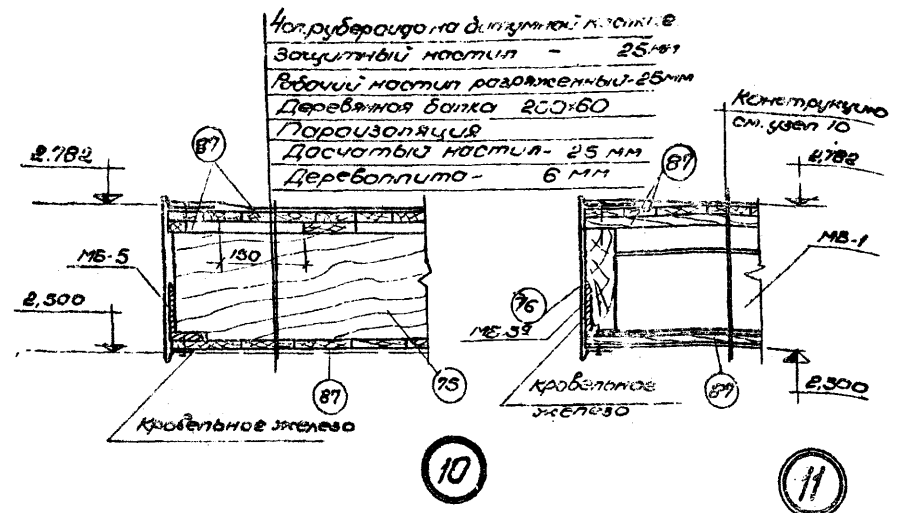 4сл. рубероида на битумной мастике
Защитный настил - 25 мм
Рабочий настил разряженный - 25мм
Деревянная балка 200×60
Пароизоляция
Досчатый настил - 25 мм
Деревоплита - 6 мм
Конструкцию
см. узел 10
87
87
2.782
2,782
150
МБ-5
МВ-1
2,500
76
87
75
87
кровельное железо
кровельное
железо
2,500
10
11